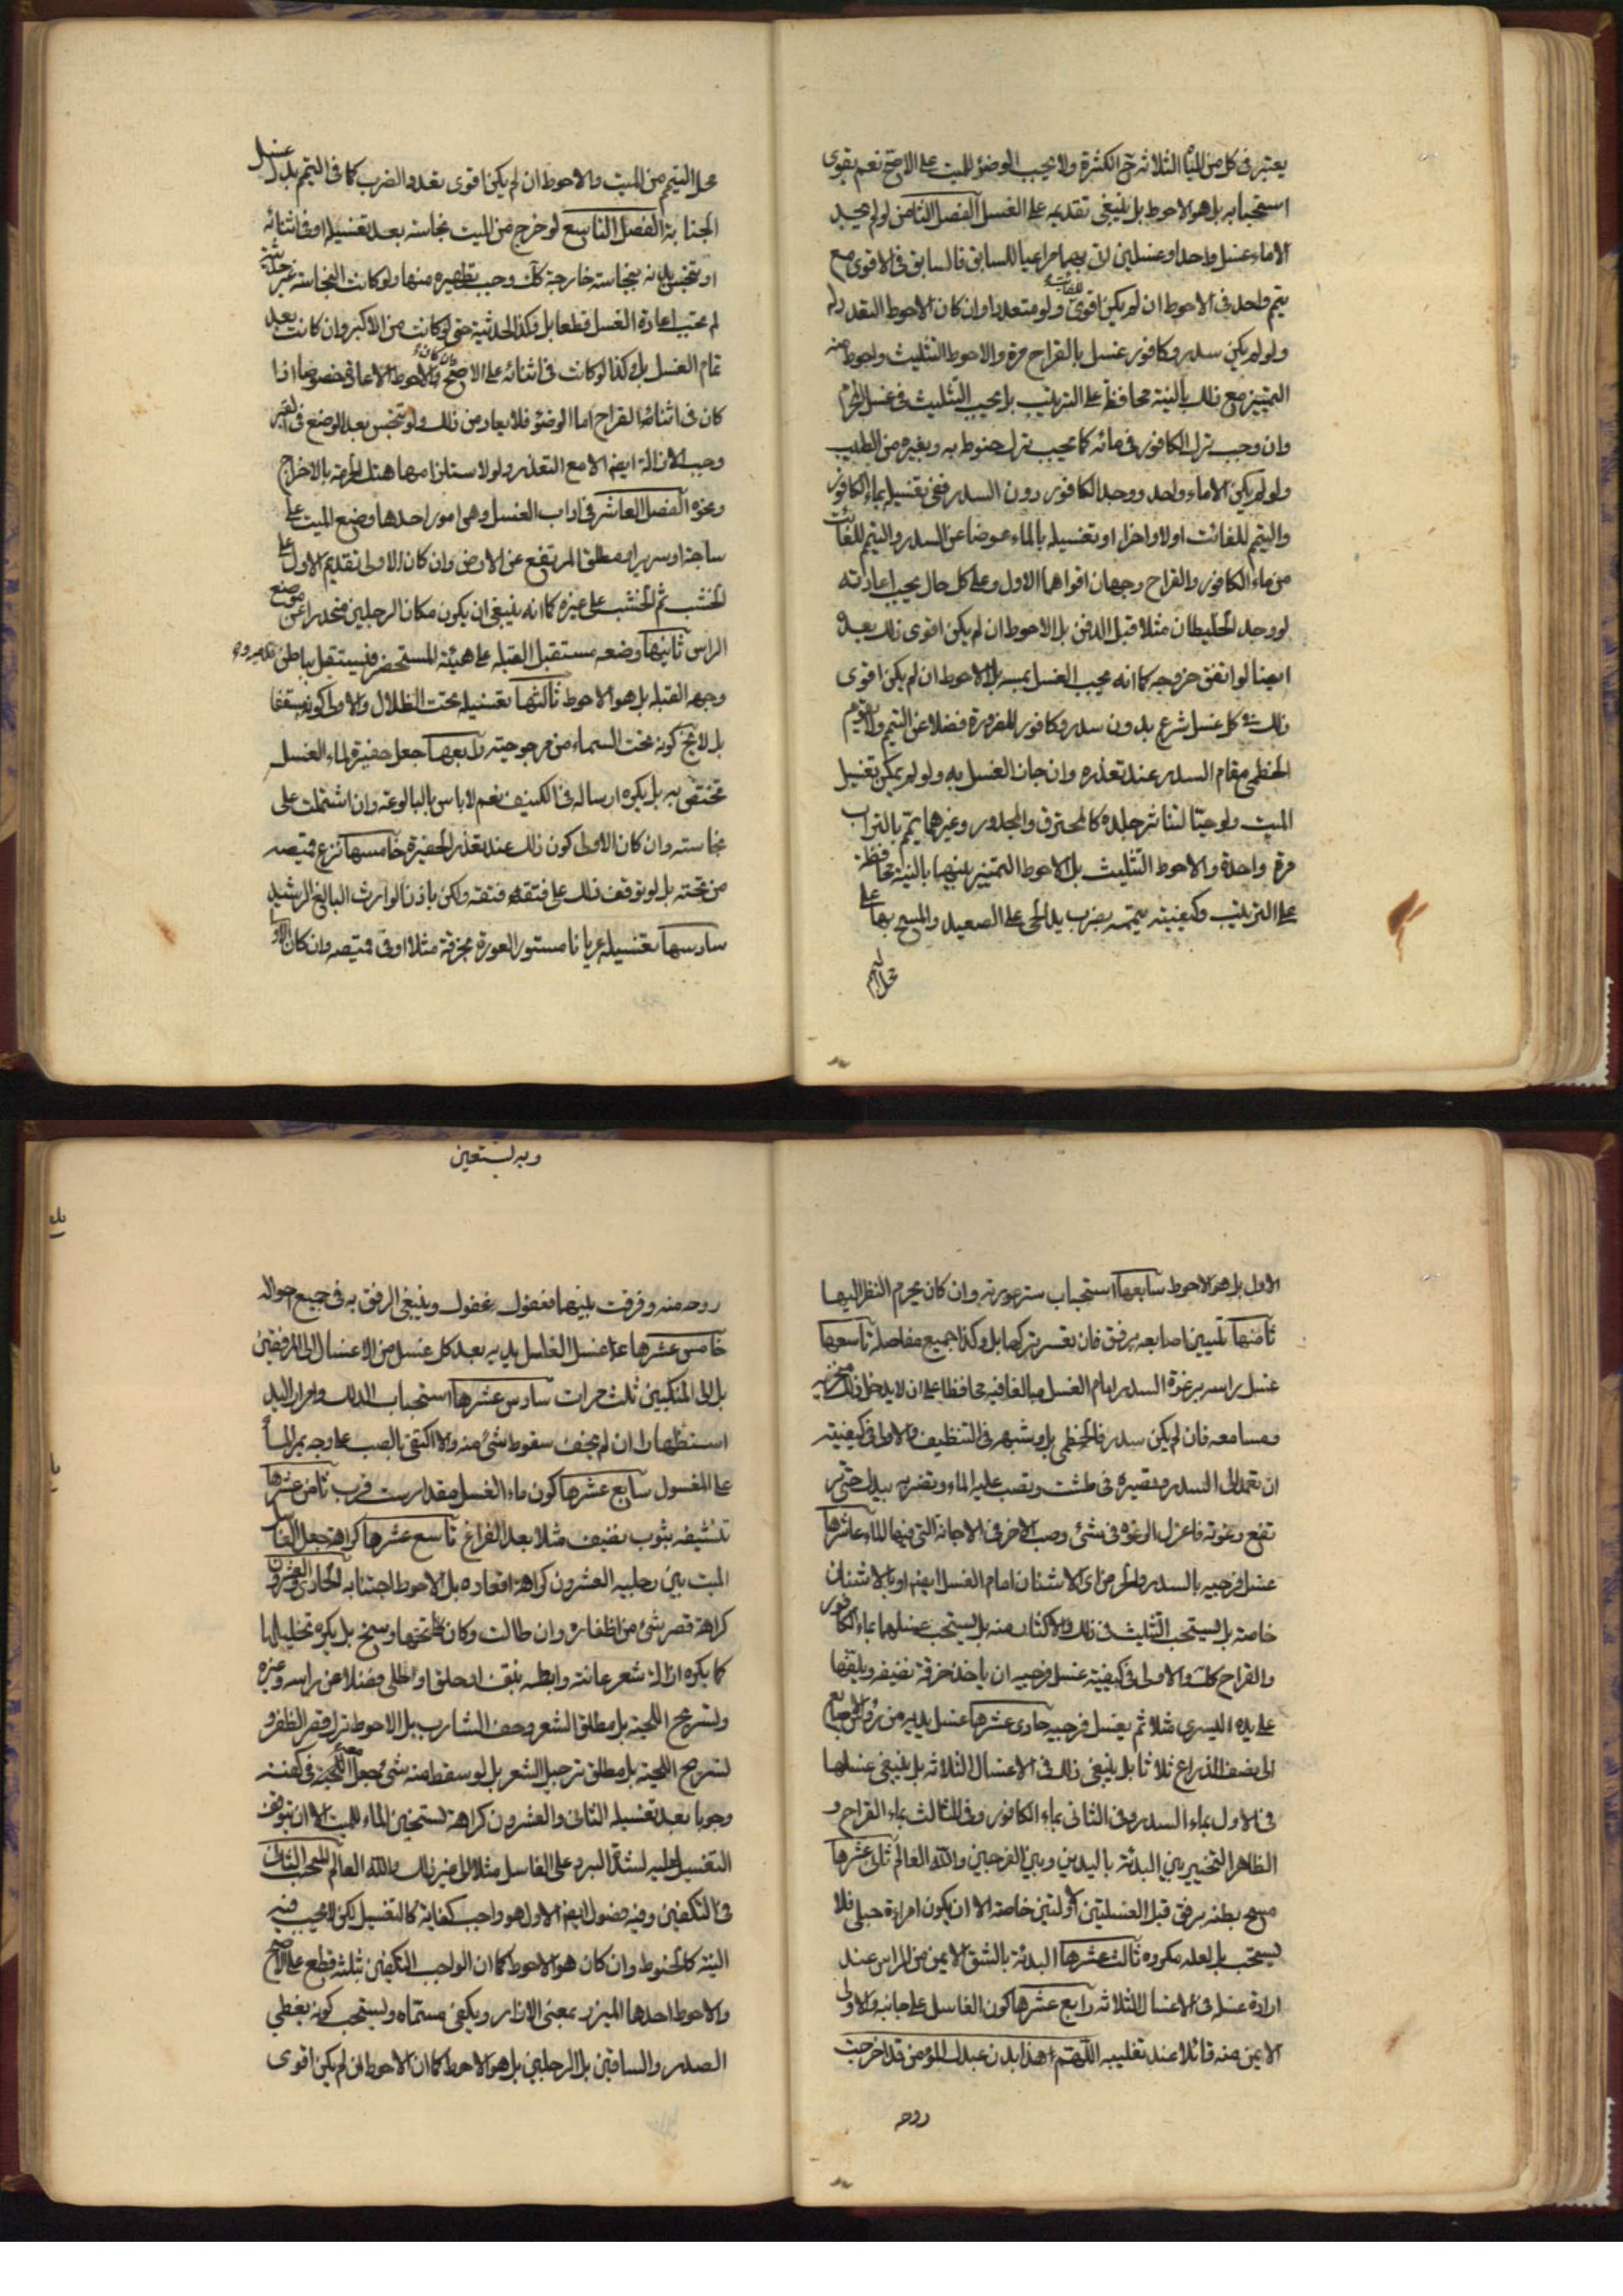 يعتبر في كل من المياه الثلاثة الكثرة ولا يجب الوضوء للميت على الاصح نعم يقوى
استحبابه بل هو الاحوط بل ينبغي تقديمه على الغسل الفصل الثامن لو لم يجد
الا ماء غسل واحد او غسلين اتى بهما مراعيا للسابق فالسابق في الاقوى مع
تيمم واحد في الاحوط ان لم يكن اقوى ولو متعددا وان كان الاحوط التعدد
ولو لم يكن سدر وكافور غسل بالقراح مرة والاحوط التثليث واحوط منه
التمييز مع ذلك بالنية محافظة على الترتيب بل يجب التثليث في غسل المحرم
وان وجب ترك الكافور في مائه كما يجب ترك حنوطه به وبغيره من الطيب
ولو لم يكن الا ماء واحد ووجد الكافور دون السدر ففي تغسيله بماء الكافور
والتيمم للفائت اولا واخرا او تغسيله بالماء عوضا عن السدر والتيمم للفائت
من ماء الكافور والقراح وجهان اقواهما الاول وعلى كل حال يجب اعادته
لو وجد الخليطان مثلا قبل الدفن بل الاحوط ان لم يكن اقوى ذلك بعده
ايضا لو اتفق خروجه كما انه يجب الغسل بمسه بل الاحوط ان لم يكن اقوى
ذلك في كل غسل شرع بدون سدر وكافور للضرورة فضلا عن التيمم ولا يقوم
الخطمي مقام السدر عند تعذره وان جاز الغسل به ولو لم يمكن تغسيل
الميت ولو حيّا لتناثر جلده كالمحترق والمجدور وغيرهما يمّم بالتراب
مرة واحدة والاحوط التثليث بل الاحوط التمييز بينهما بالنية محافظة
على الترتيب وكيفيته يتممه بضرب يد الحي على الصعيد والمسح بها على
محل التيمم
محل التيمم من الميت والاحوط ان لم يكن اقوى تعدد الضرب كما في التيمم بدل غسل
الجنابة الفصل التاسع لو خرج من الميت نجاسة بعد تغسيله او في اثنائه
او تنجس بدنه بنجاسة خارجة كك وجب تطهيره منها ولو كانت النجاسة غير حدثية
لم يجب اعادة الغسل قطعا بل وكذا الحدثية حتى لو كانت من الاكبر وان كانت بعد
تمام الغسل بل وكذا لو كانت في اثنائه على الاصح وان كان الاحوط الاعادة خصوصا اذا
كان في اثناء القراح اما الوضوء فلا يعاد من ذلك ولو تنجس بعد الوضع في القبر
وجب الازالة ايضا الا مع التعذر ولو لاستلزامها هتك الحرمة بالاخراج
ونحوه الفصل العاشر في اداب الغسل وهي امور احدها وضع الميت على
ساجة او سرير او مطلق المرتفع عن الارض وان كان الاولى تقديم الاول على
الخشب ثم الخشب على غيره كما انه ينبغي ان يكون مكان الرجلين منحدرا عن موضع
الراس ثانيها وضعه مستقبل القبلة على هيئة المستحضر فيستقبل بباطن قدميه و
وجهه القبلة بل هو الاحوط ثالثها تغسيله تحت الظلال والاولى كونه سقفا
بل لا يخ كونه تحت السماء من مرجوحية رابعها جعل حفيرة لماء الغسل
تختص به بل يكره ارساله في الكنيف نعم لا باس بالبالوعة وان اشتملت على
نجاسة وان كان الاولى كون ذلك عند تعذر الحفيرة خامسها نزع قميصه
من تحته بل لو توقف ذلك على فتقه فتقه ولكن باذن الوارث البالغ الرشيد
سادسها تغسيله عريانا مستور العورة بخرقة مثلا او في قميصه وان كان الاولى
وبه نستعين
الاول بل هو الاحوط سابعها استحباب ستر عورته وان كان يحرم النظر اليها
ثامنها تليين اصابعه برفق فان تعسر تركها بل وكذا جميع مفاصله تاسعها
غسل راسه برغوة السدر امام الغسل مبالغا فيه محافظا على ان لا يدخل ذلك منخريه
ومسامعه فان لم يكن سدر فالخطمي بل وشبهه في التنظيف والاولى في كيفيته
ان تعمد الى السدر وتصيره في طشت وتصب عليه الماء وتضربه بيدك حتى
ترتفع رغوته فاعزل الرغوة في شئ وصب الاخر في الاجانة التي فيها الماء عاشرها
غسل فرجيه بالسدر والحرض اى الاشنان امام الغسل ايضا او بالاشنان
خاصة بل يستحب التثليث في ذلك والاكثار منه بل يستحب غسلهما بماء الكافور
والقراح كك والاولى في كيفية غسل فرجيه ان ياخذ خرقة نضيفه ويلفها
على يده اليسرى مثلا ثم يغسل فرجيه حادى عشرها غسل يديه من رؤس الاصابع
الى نصف الذراع ثلاثا بل ينبغي ذلك في الاغسال الثلاثة بل ينبغي غسلها
في الاول بماء السدر وفي الثاني بماء الكافور وفي الثالث بماء القراح و
الظاهر التخيير بين البدئة باليدين وبين الفرجين والله العالم ثاني عشرها
مسح بطنه برفق قبل الغسلتين الاولتين خاصة الا ان يكون امراءة حبلى فلا
يستحب بل لعله مكروه ثالث عشرها البدئة بالشق الايمن من الراس عند
ارادة غسله في الاغسال الثلاثة رابع عشرها كون الغاسل على جانبه والاولى
الايمن منه قائلا عند تغليبه اللهم هذا بدن عبدك المؤمن قد اخرجت
روحه
روحه منه وفرقت بينهما فعفوك عفوك وينبغي الرفق به في جميع احواله
خامس عشرها غسل الغاسل يديه بعد كل غسل من الاغسال الى المرفقين
بل الى المنكبين ثلث مرات سادس عشرها استحباب الدلك وامرار اليد
استظهارا ان لم يخف سقوط شئ منه والا اكتفي بالصب على وجه يمر الماء
على المغسول سابع عشرها كون ماء الغسل مقدار ست قرب ثامن عشرها
تنشيفه بثوب نضيف مثلا بعد الفراغ تاسع عشرها كراهة جعل الغاسل
الميت بين رجليه العشرون كراهة اقعاده بل الاحوط اجتنابه الحادى والعشرون
كراهة قص شئ من اظفاره وان طالت وكان تحتها وسخ بل يكره تخليلها
كما يكره ازالة شعر عانته وابطه بنتف او حلق او طلي فضلا عن راسه وغيره
وتسريح اللحية بل مطلق الشعر وحف الشارب بل الاحوط ترك قص الظفر و
تسريح اللحية بل مطلق ترجيل الشعر بل لو سقط منه شئ جعل في كفنه
وجوبا بعد تغسيله الثاني والعشرون كراهة تسخين الماء للميت الا ان يتوقف
التغسيل عليه لشدة البرد على الغاسل مثلا او لغير ذلك والله العالم المبحث الثالث
في التكفين وفيه فصول ايضا الاول هو واجب كفاية كالتغسيل لكن لا يجب فيه
النية كالحنوط وان كان هو الاحوط كما ان الواجب التكفين بثلثة قطع على الاصح
والاحوط احدها الميزر بمعنى الازار ويكفي مسماه ويستحب كونه يغطي
الصدر والساقين بل الرجلين بل هو الاحوط كما ان الاحوط ان لم يكن اقوى